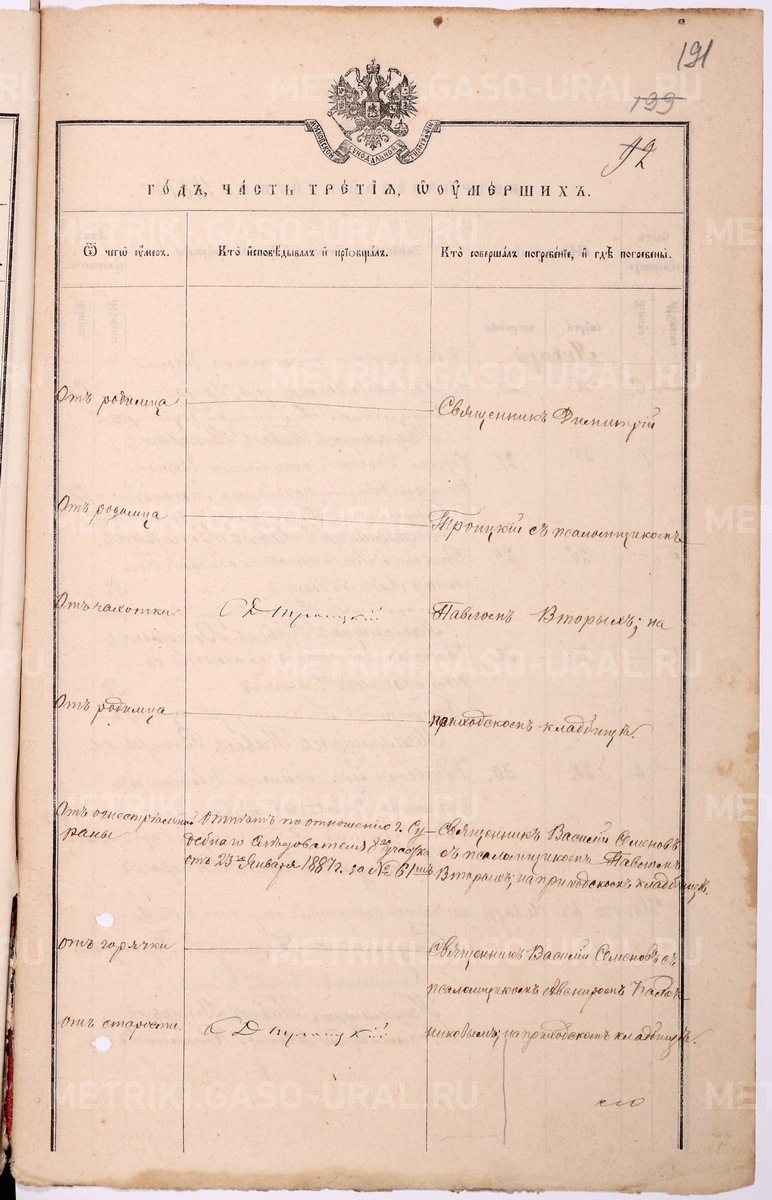 191
199
92
МОСКОВСКОЙ СѴНОДАЛЬНОЙ ТИПОГРАФІИ
ГО́ДЪ, ЧА́СТЬ ТРЕ́ТІѦ, Ѡ҆ ОУ҆МЕ́РШИХЪ.
Ѿ чегѡ̀ оу҆́меръ.
Кто̀ и҆сповѣ́дывалъ и҆ прїѡбща́лъ.
Кто̀ соверша́лъ погребе́нїе, и҆ гдѣ̀ погребены̀.
Отъ родимца
Священникъ Димитрій
Отъ родимца
Троицкій съ псаломщикомъ
Отъ чахотки
С Д Троицкій
Павломъ Вторыхъ; на
Отъ родимца
приходскомъ кладбищѣ.
Отъ огнестрѣльной
раны
Отпѣтъ по отношенію г. Су-
дебнаго Слѣдователя 1го участка
отъ 23го Января 1887 г. за № 61мъ
Священникъ Василій Семеновъ
съ псаломщикомъ Павломъ
Вторыхъ; на приходскомъ кладбищѣ.
отъ горячки
Священникъ Василій Семеновъ съ
псаломщикомъ Авениромъ
отъ старости
С Д Троицкій
никовымъ; на приходскомъ кладбищѣ.
METRIKI.GASO-URAL.RU